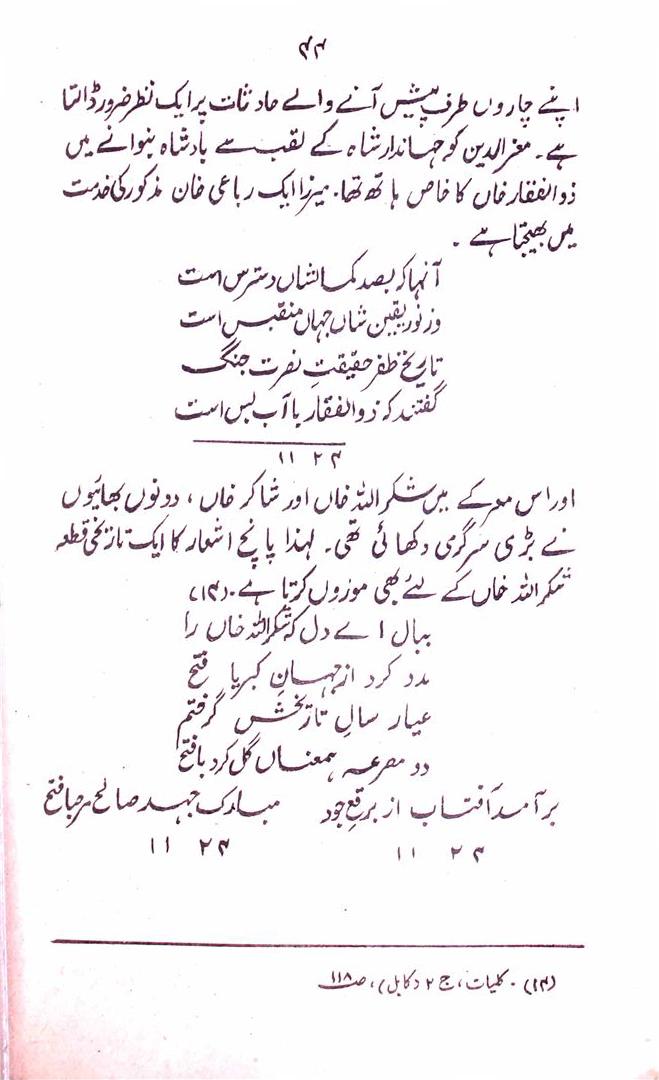 ۴۴
اپنے چاروں طرف پیش آنے والے حادثات پر ایک نظر ضرور ڈالتا
ہے۔ معزالدین کو جہاندار شاہ کے لقب سے بادشاہ بنوانے میں
ذوالفقار خاں کا خاص ہاتھ تھا۔ میرزا ایک رباعی خان مذکور کی خدمت
میں بھیجتا ہے ۔
آنہا کہ بصد کمالشاں دسترس است
وز نورِ یقین شاں جہاں منقبس است
تاریخِ ظفر حقیقتِ نصرت جنگ
گفتند کہ ذوالفقار با آب بس است
۱۱ ۲۴
اور اس معرکے میں شکر اللہ خاں اور شاکر خاں ، دونوں بھائیوں
نے بڑی سرگرمی دکھائی تھی۔ لہٰذا پانچ اشعار کا ایک تاریخی قطعہ
شکر اللہ خاں کے لئے بھی موزوں کرتا ہے۔ (۱۴)
ببال اے دل کہ شکر اللہ خاں را
مدد کرد از جہانِ کبریا فتح
عیار سالِ تاریخش گرفتم
دو مصرعہ ہمعناں گل کرد با فتح
برآمد آفتاب از برقعِ جود مبارک جہد صالح مرحبا فتح
۱۱ ۲۴ ۱۱ ۲۴
(۱۴) ۔ کلیات ، ج ۲ (کابل) ، ص ۱۱۸